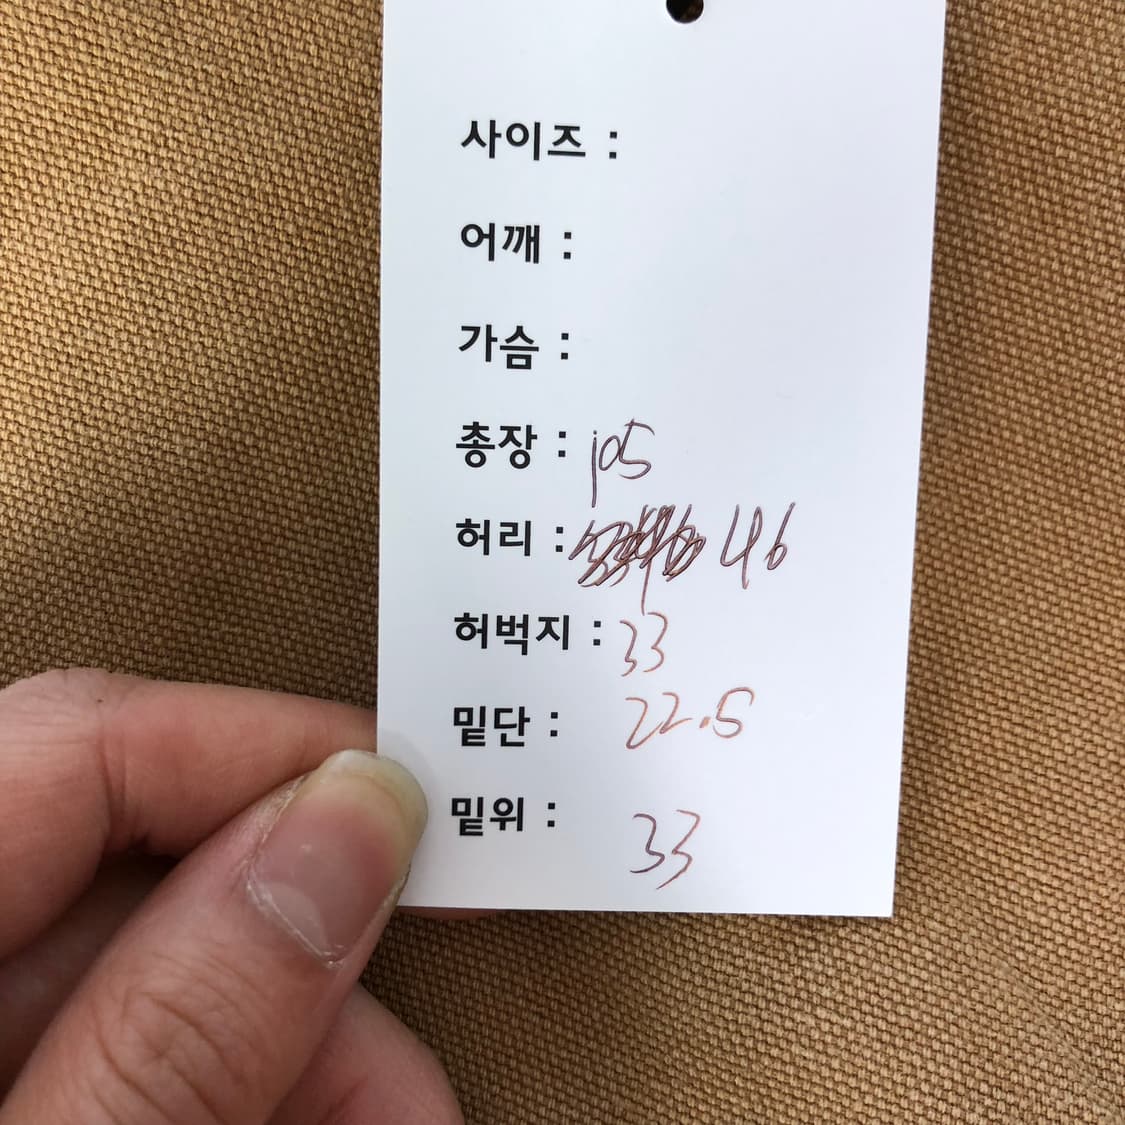 사이즈 :
어깨 :
가슴 :
총장 : 105
허리 : 46
허벅지 : 33
밑단 : 22.5
밑위 : 33